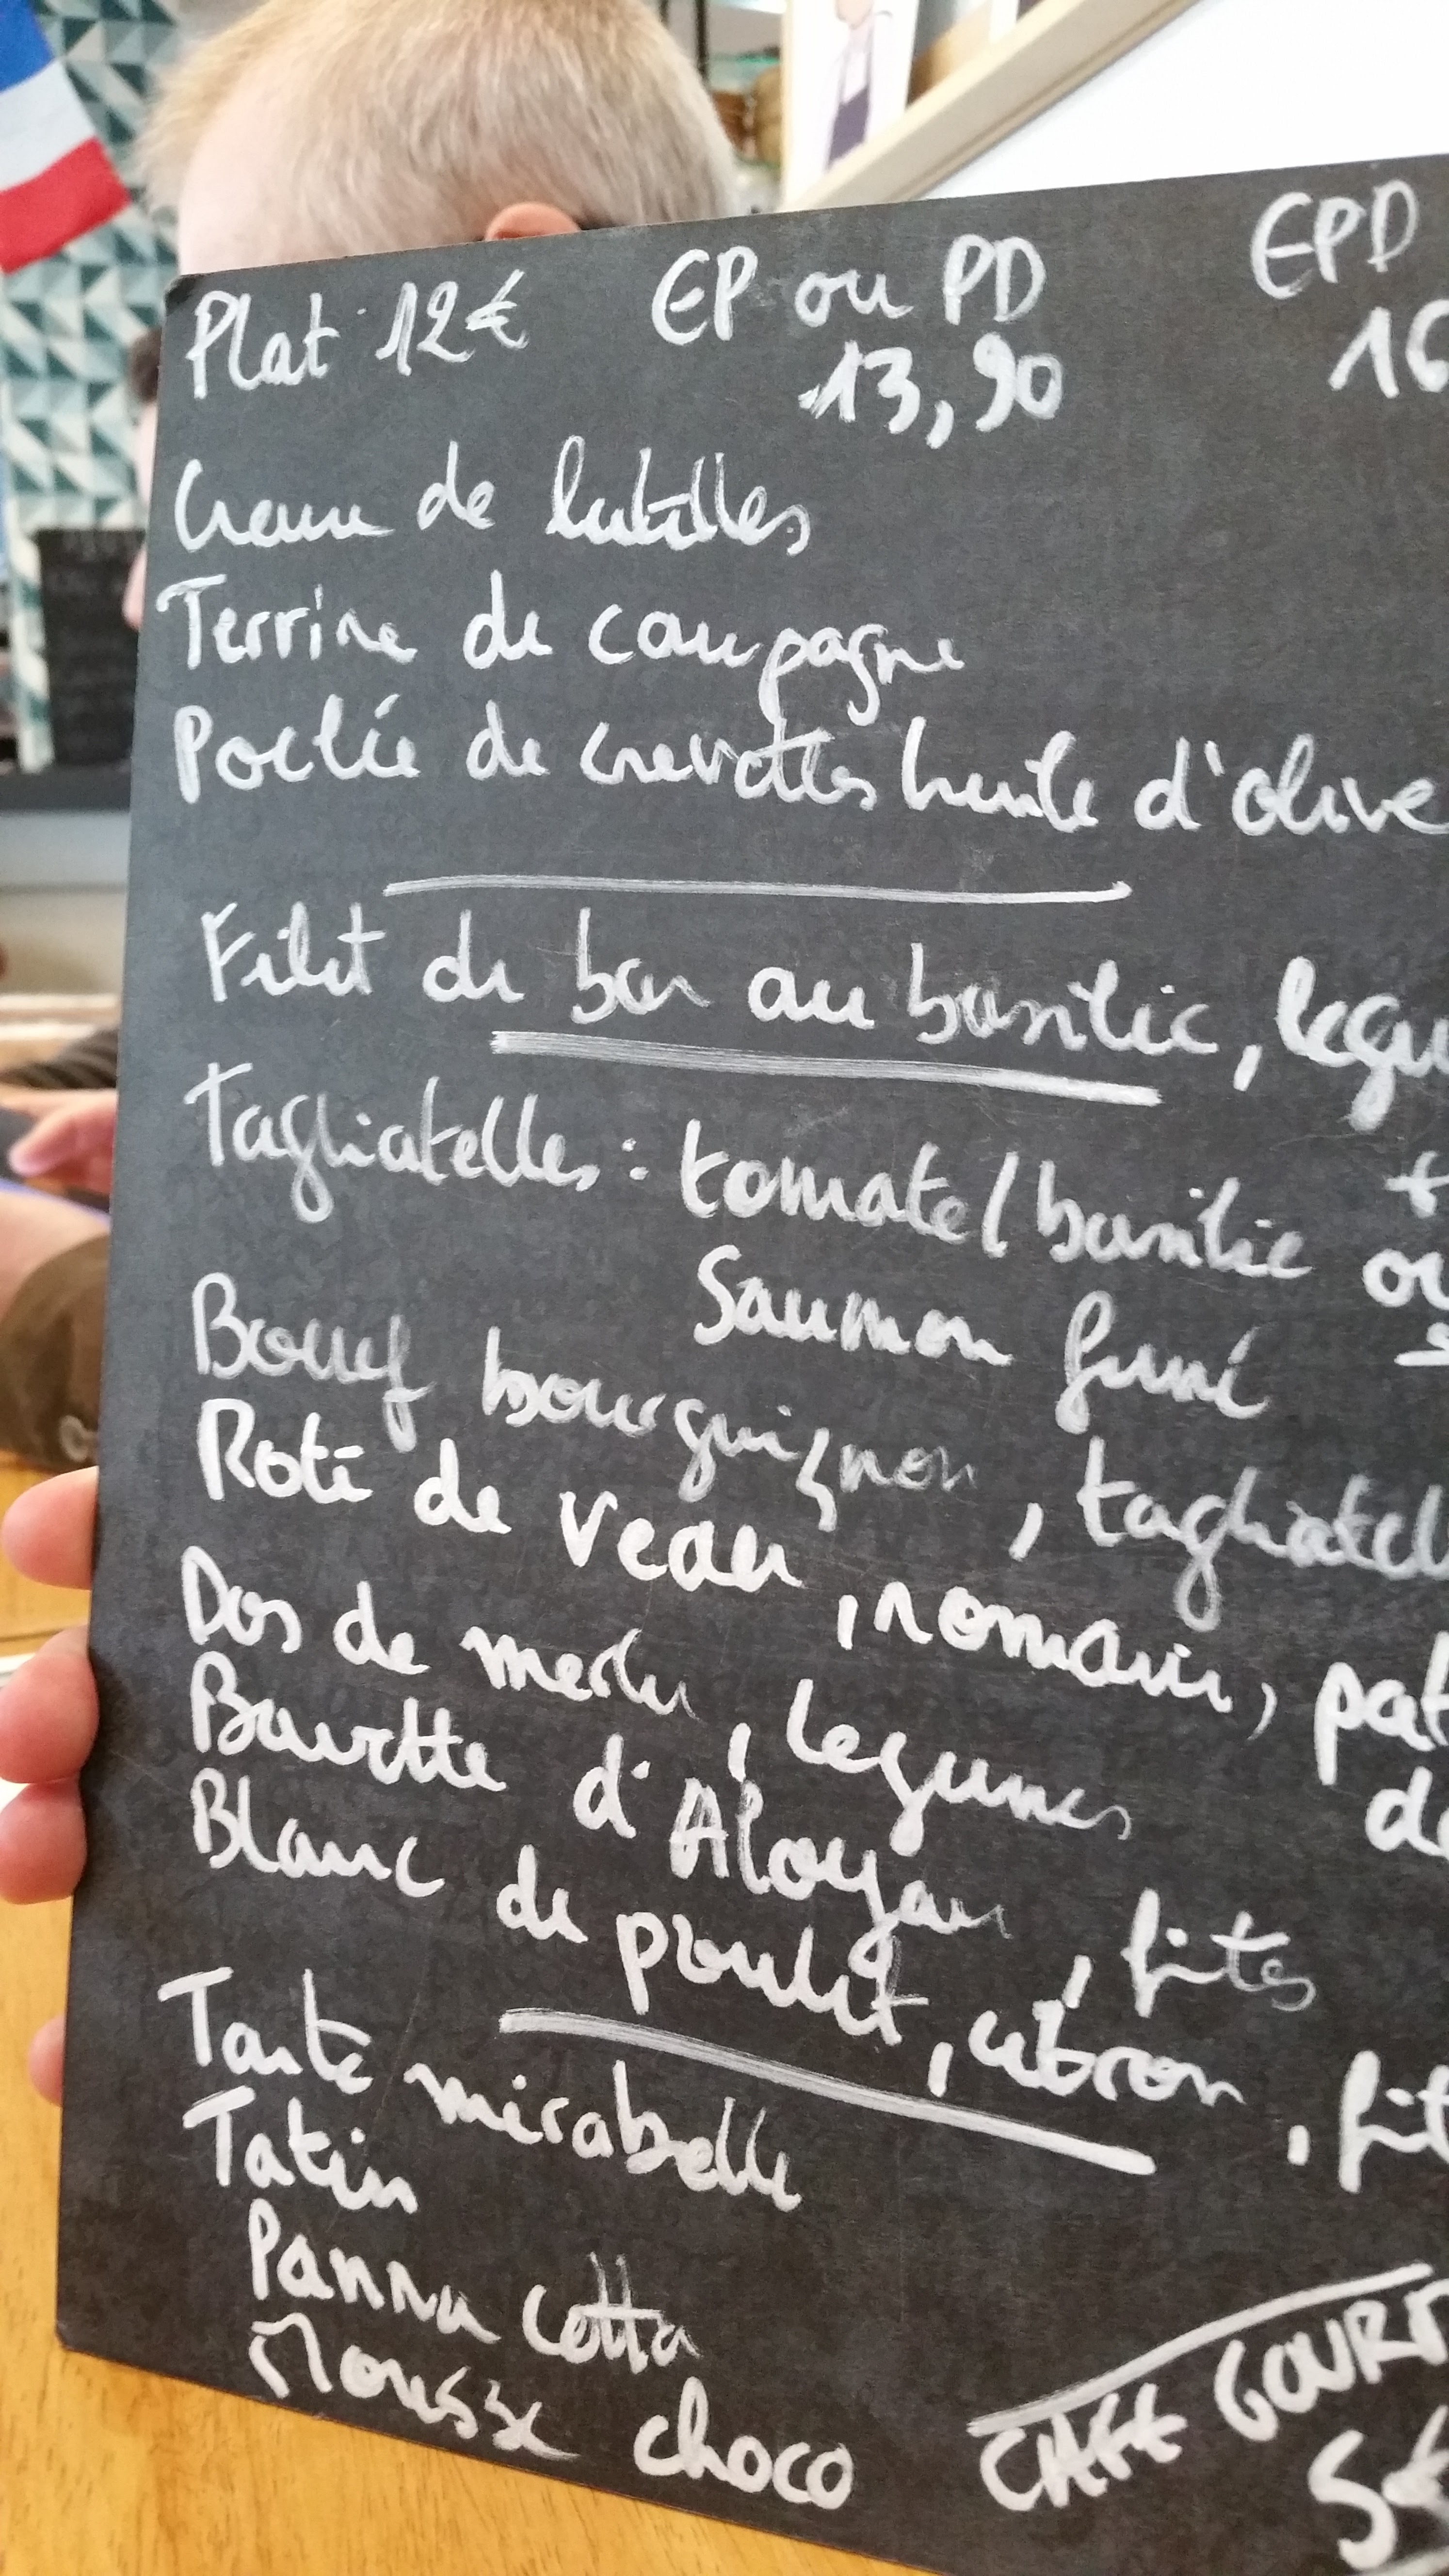 Plat 12€ EP ou PD EPD
13,90 16
Creme de lentilles
Terrine de campagne
Poelée de crevettes huile d'olive
Filet de bar au basilic, legu
Tagliatelles : tomate / basilic ou
Saumon fumé
Boeuf bourguignon, tagliatell
Roti de veau, romarin, pat
Dos de merlu, legumes de
Bavette d'Aloyau, frites
Blanc de poulet, citron, frit
Tarte mirabelle
Tatin
Panna Cotta
Mousse choco
CAFE GOURM
5€